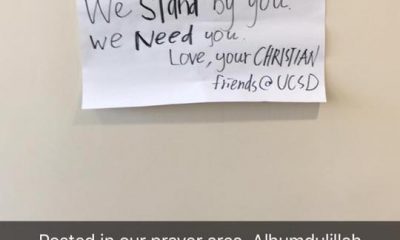 We Stand by you.
We Need you.
Love, your CHRISTIAN
friends@UCSD
Posted in our prayer area. Alhumdulillah